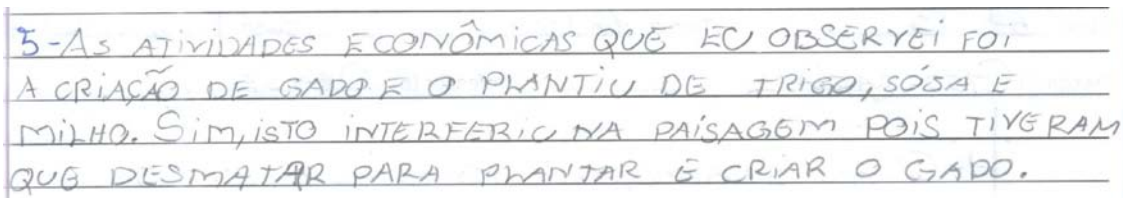 5-AS ATIVIDADES ECONÔMICAS QUE EU OBSERVEI FOI
A CRIAÇÃO DE GADO E O PLANTIU DE TRIGO, SÓJA E
MILHO. SIM, ISTO INTERFERIU NA PAÍSAGEM POIS TIVERAM
QUE DESMATAR PARA PLANTAR E CRIAR O GADO.